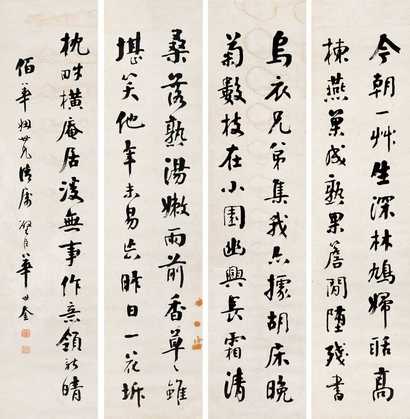 今朝一艸生深林鳩婦聒高
棟燕巢成熟果簷間墮殘書
烏衣兄弟集我亦據胡床晚
菊數枝在小園幽興長霜清
桑落熟湯嫩雨前香草草雖
堪笑他年未易忘昨日一花坼
枕畔橫庵居設無事作意領新晴
華世奎